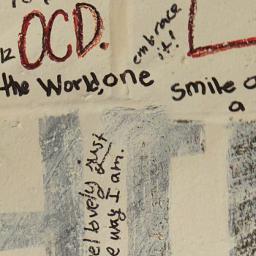 OCD.
embrace
it!
the World, one
smile
a
lovely just
way I am.